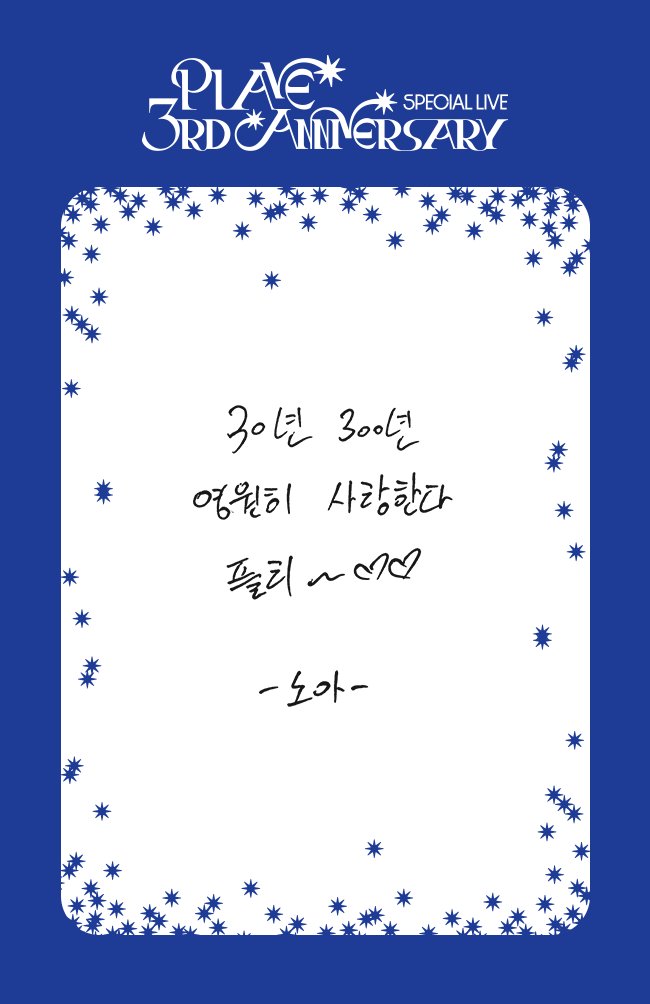 PLAVE
SPECIAL LIVE
3RD ANNIVERSARY
30년 300년
영원히 사랑한다
플리 ~♡♡
-노아-